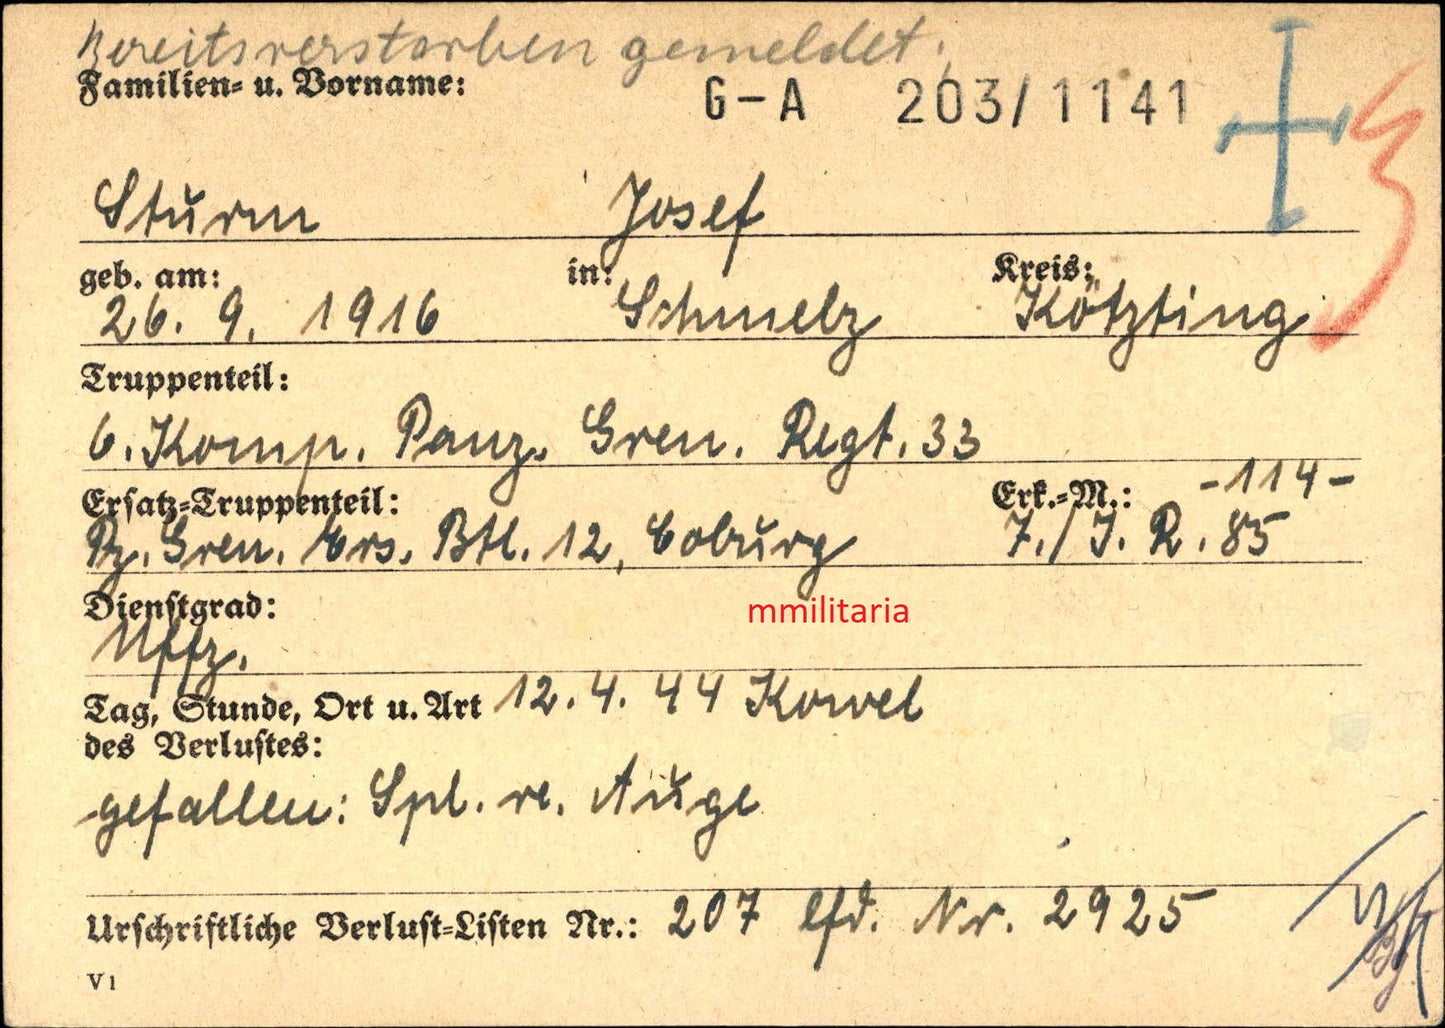 Bereits verstorben gemeldet.
Familien= u. Vorname:
G-A 203/1141
Sturm Josef
geb. am: in: Kreis:
26. 9. 1916 Schmelz Kötzting
Truppenteil:
6. Komp. Panz. Gren. Regt. 33
Ersatz=Truppenteil: Erk.=M.: -114-
Pz. Gren. Ers. Btl. 12, Coburg 7./I. R. 85
Dienstgrad:
mmilitaria
Uffz.
Tag, Stunde, Ort u. Art 12. 4. 44 Kowel
des Verlustes:
gefallen: Spl. re. Auge
Urschriftliche Verlust=Listen Nr.: 207 lfd. Nr. 2925
V1